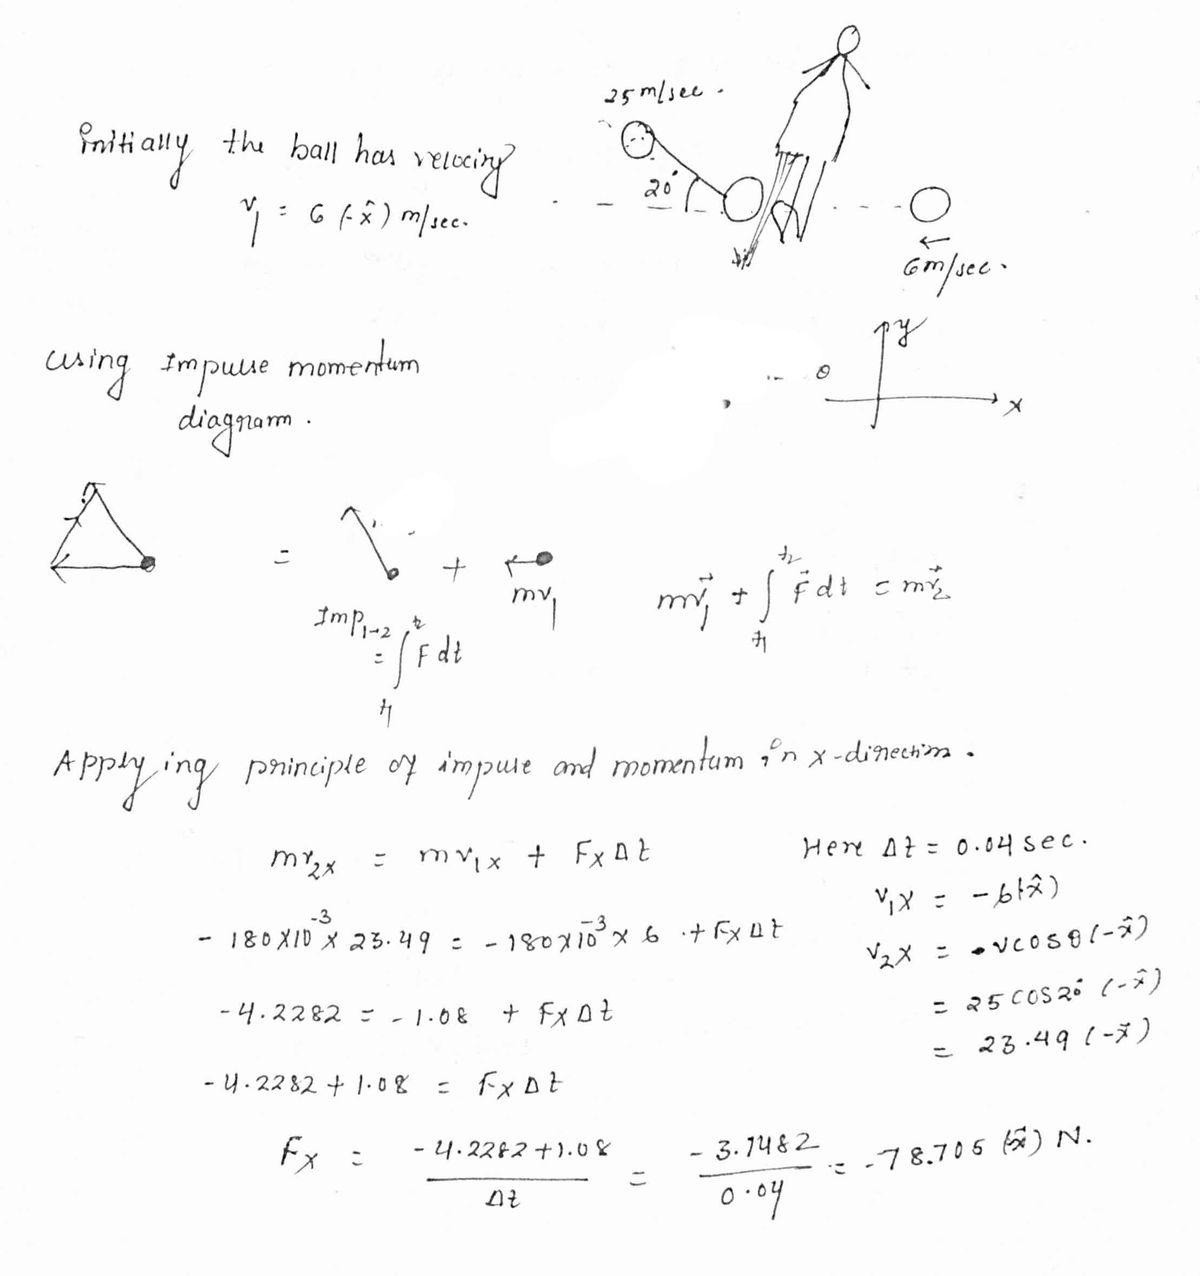 25 m/sec.
initially the ball has velocity
v₁ = 6 (-x̂) m/sec.
20°
6m/sec.
y
θ
x
Using Impulse momentum
diagram.
= + mv₁
Imp₁→₂
= ∫ₜ₁ᵗ² F dt
mv⃗₁ + ∫ₜ₁ᵗ² F⃗ dt = mv⃗₂
Applying principle of impulse and momentum in x-direction.
mv₂ₓ = mv₁ₓ + Fₓ Δt
Here Δt = 0.04 sec.
v₁ₓ = -6(x̂)
- 180×10⁻³ × 23.49 = - 180×10⁻³ × 6 + Fₓ Δt
v₂ₓ = v cosθ (-x̂)
= 25 cos20° (-x̂)
-4.2282 = -1.08 + Fₓ Δt
= 23.49 (-x̂)
-4.2282 + 1.08 = Fₓ Δt
Fₓ = (-4.2282+1.08)/Δt = (-3.1482)/0.04 = -78.705 (x̂) N.